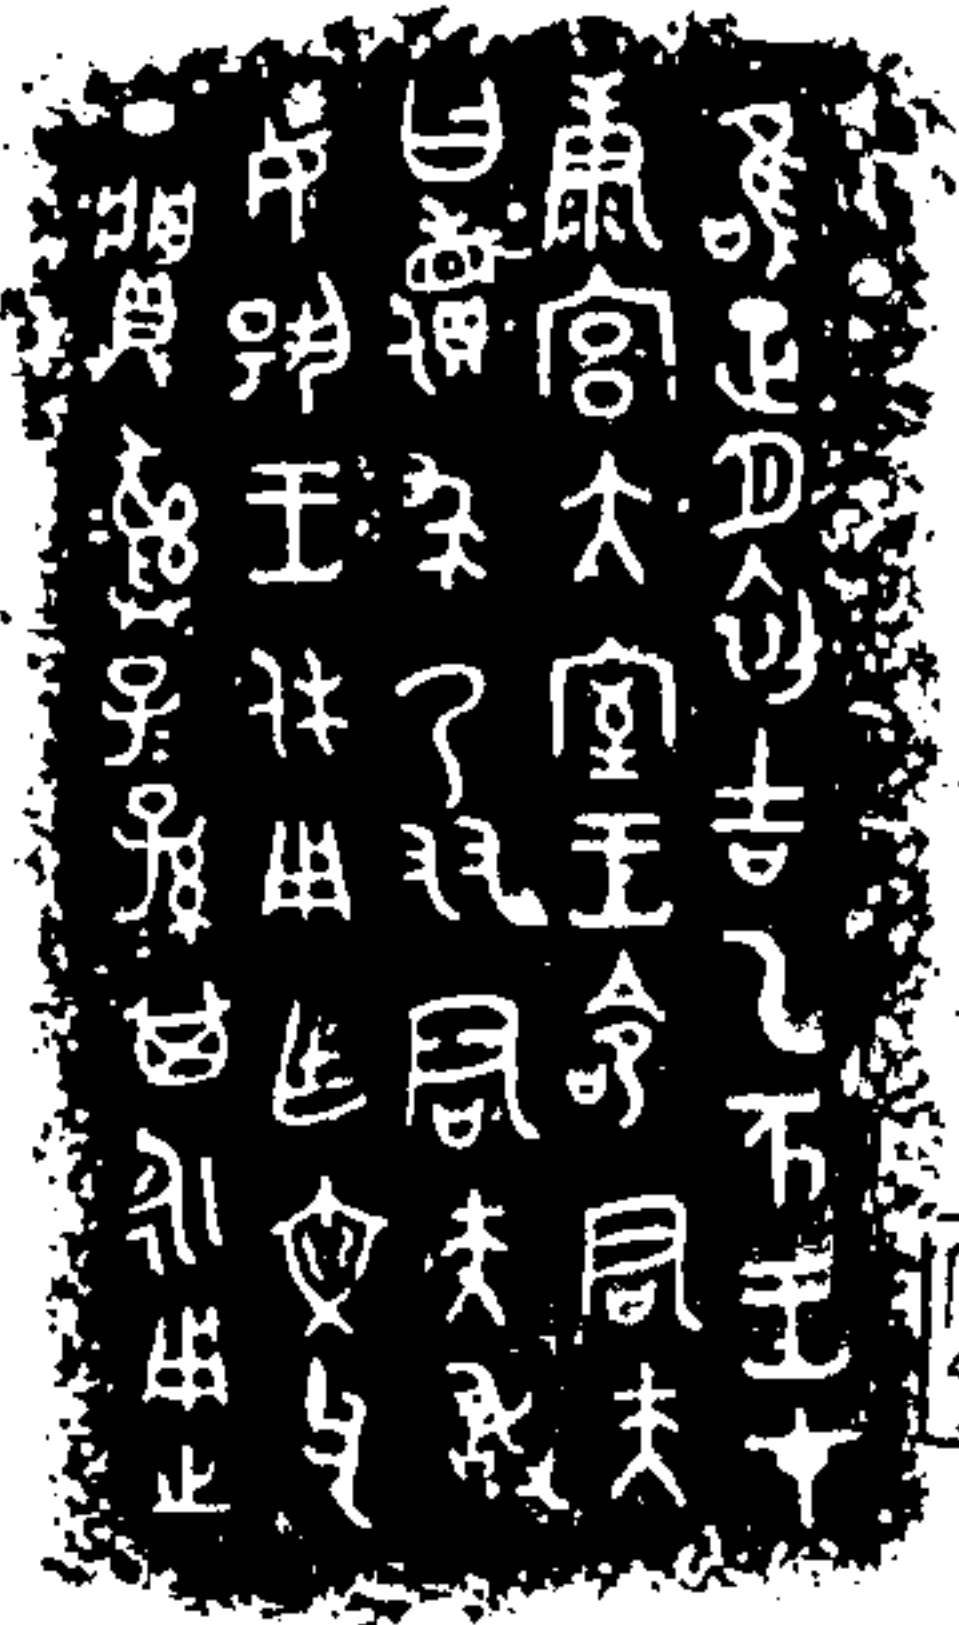 唯正月初吉乙亥王才
康宮大室王命君夫
曰儥求乃友君夫敢
揚王休用乍文父
丁鼎彝子子孫孫其永用之